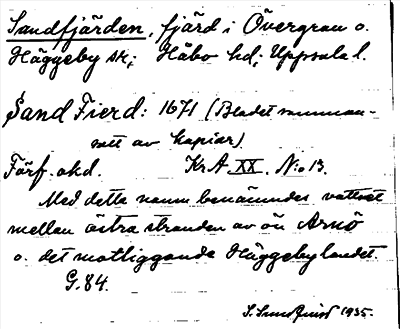 Sandfjärden, fjärd i Övergran o.
Häggeby sk; Håbo hd; Uppsala l.
Sand Fierd: 1671 (Bladet summan-
satt av kopiar)
Förf. okd. Kr A. XX. No 13.
Med detta namn benämndes vattnet
mellan östra stranden av ön Arnö
o. det motliggande Häggebylandet.
G. 84.
S. Sundquist 1935.